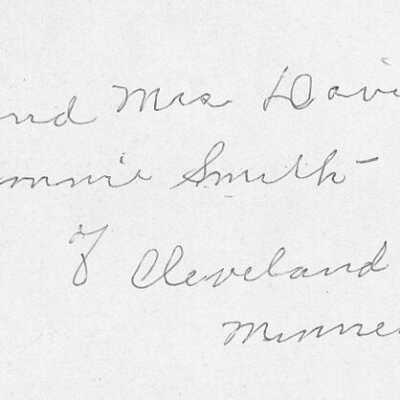 and Mrs Davi
onnie Smith
of Cleveland
Minne